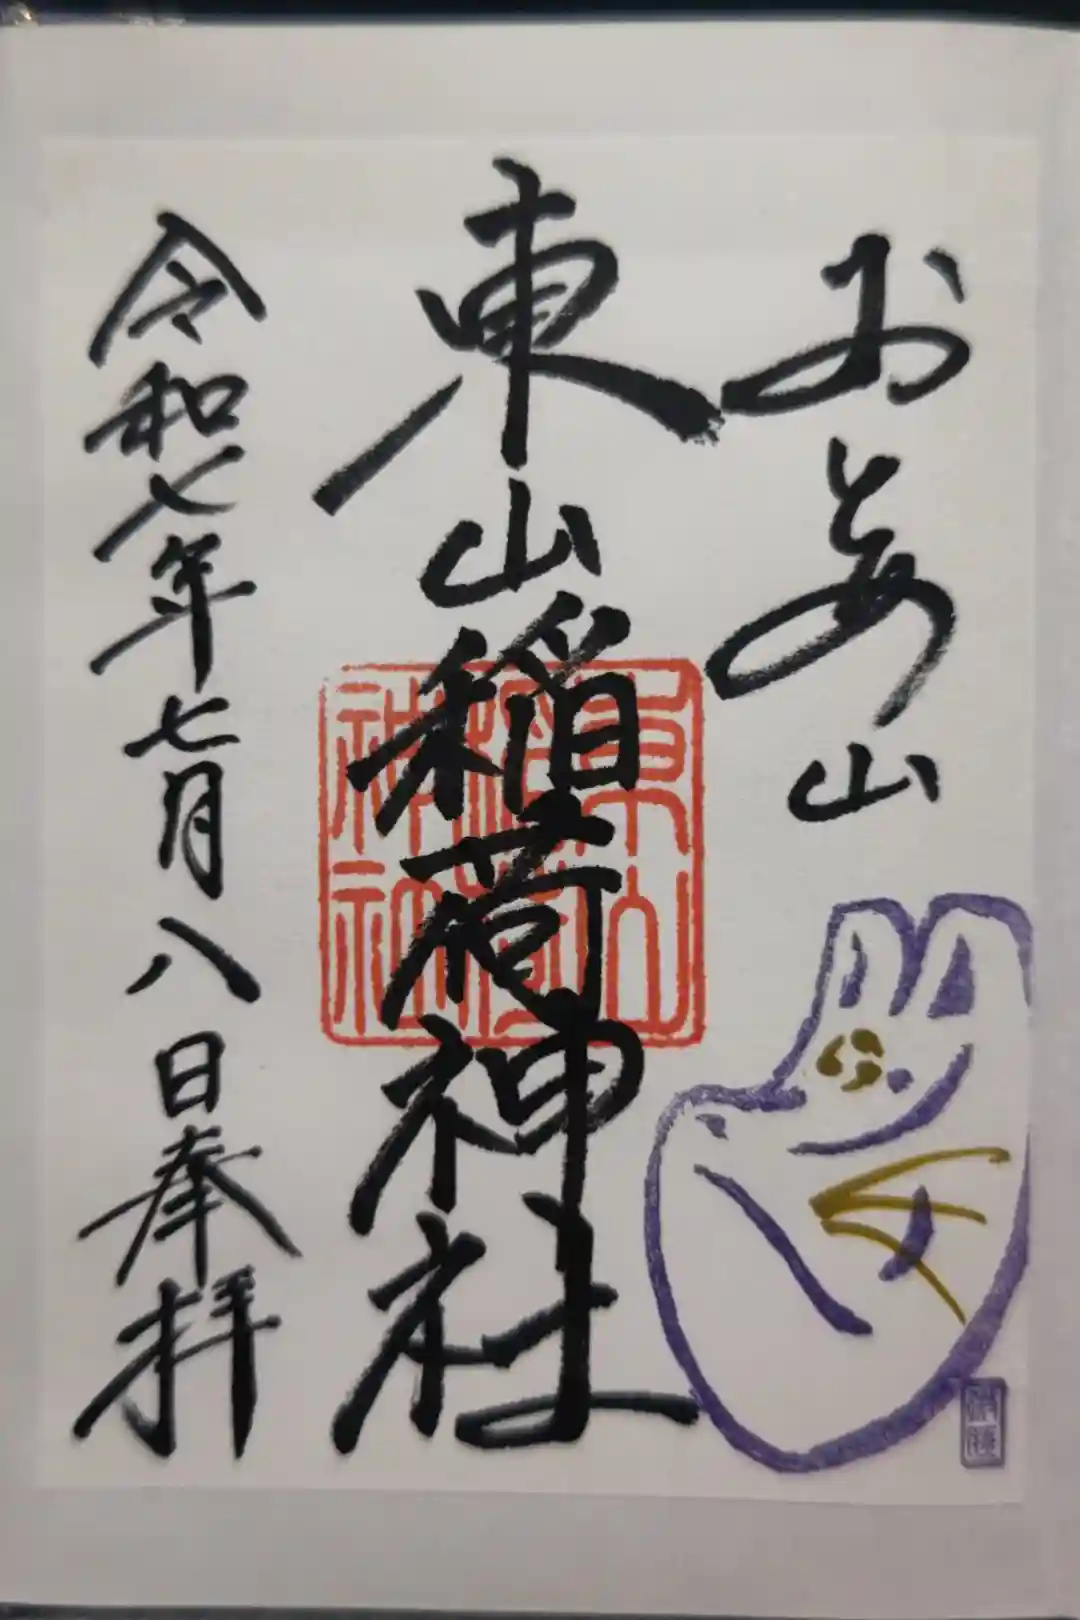 おとめ山
東山稲荷神社
令和七年七月八日奉拝
東山
稲荷
神社